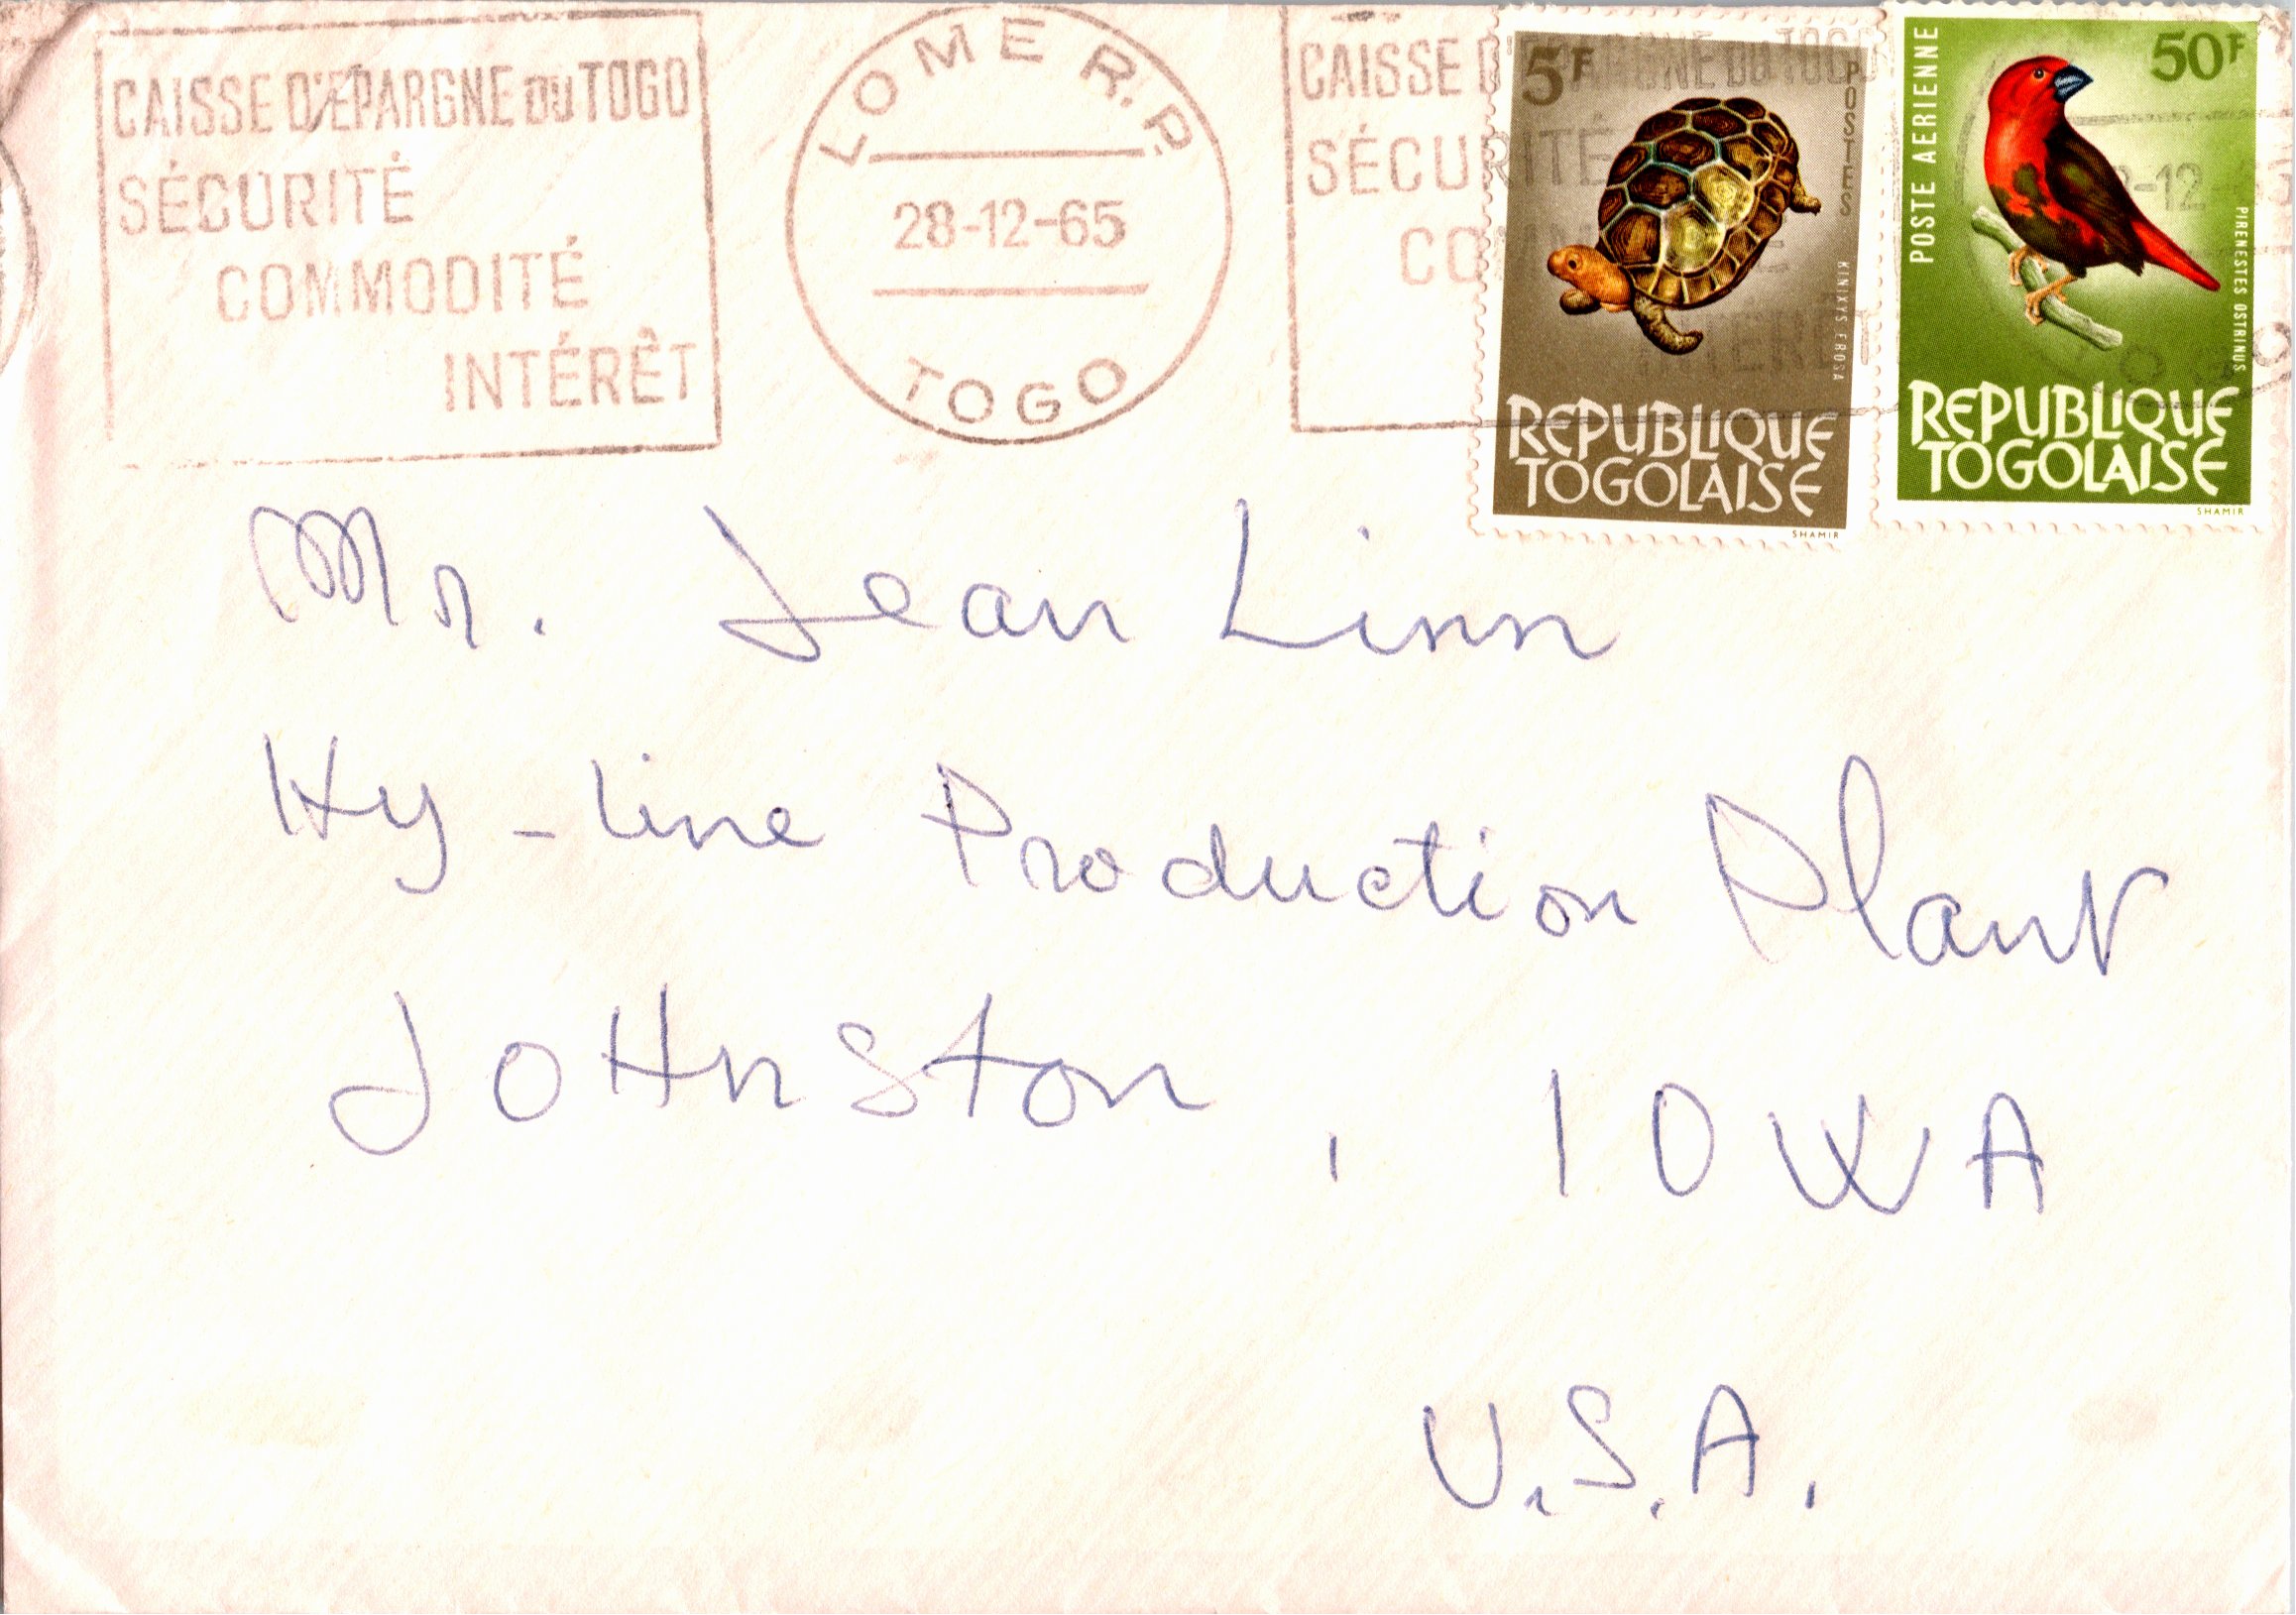 CAISSE D'ÉPARGNE DU TOGO
SÉCURITÉ
COMMODITÉ
INTÉRÊT
LOME R.P.
28-12-65
TOGO
CAISSE D'ÉPARGNE DU TOGO
SÉCURITÉ
INTÉRÊT
5F
POSTES
KINIXYS EROSA
REPUBLIQUE
TOGOLAISE
SHAMIR
50F
POSTE AERIENNE
PIRENESTES OSTRINUS
REPUBLIQUE
TOGOLAISE
SHAMIR
Mr. Jean Linn
Hy-line Production Plant
JOHnston, IOWA
U.S.A.